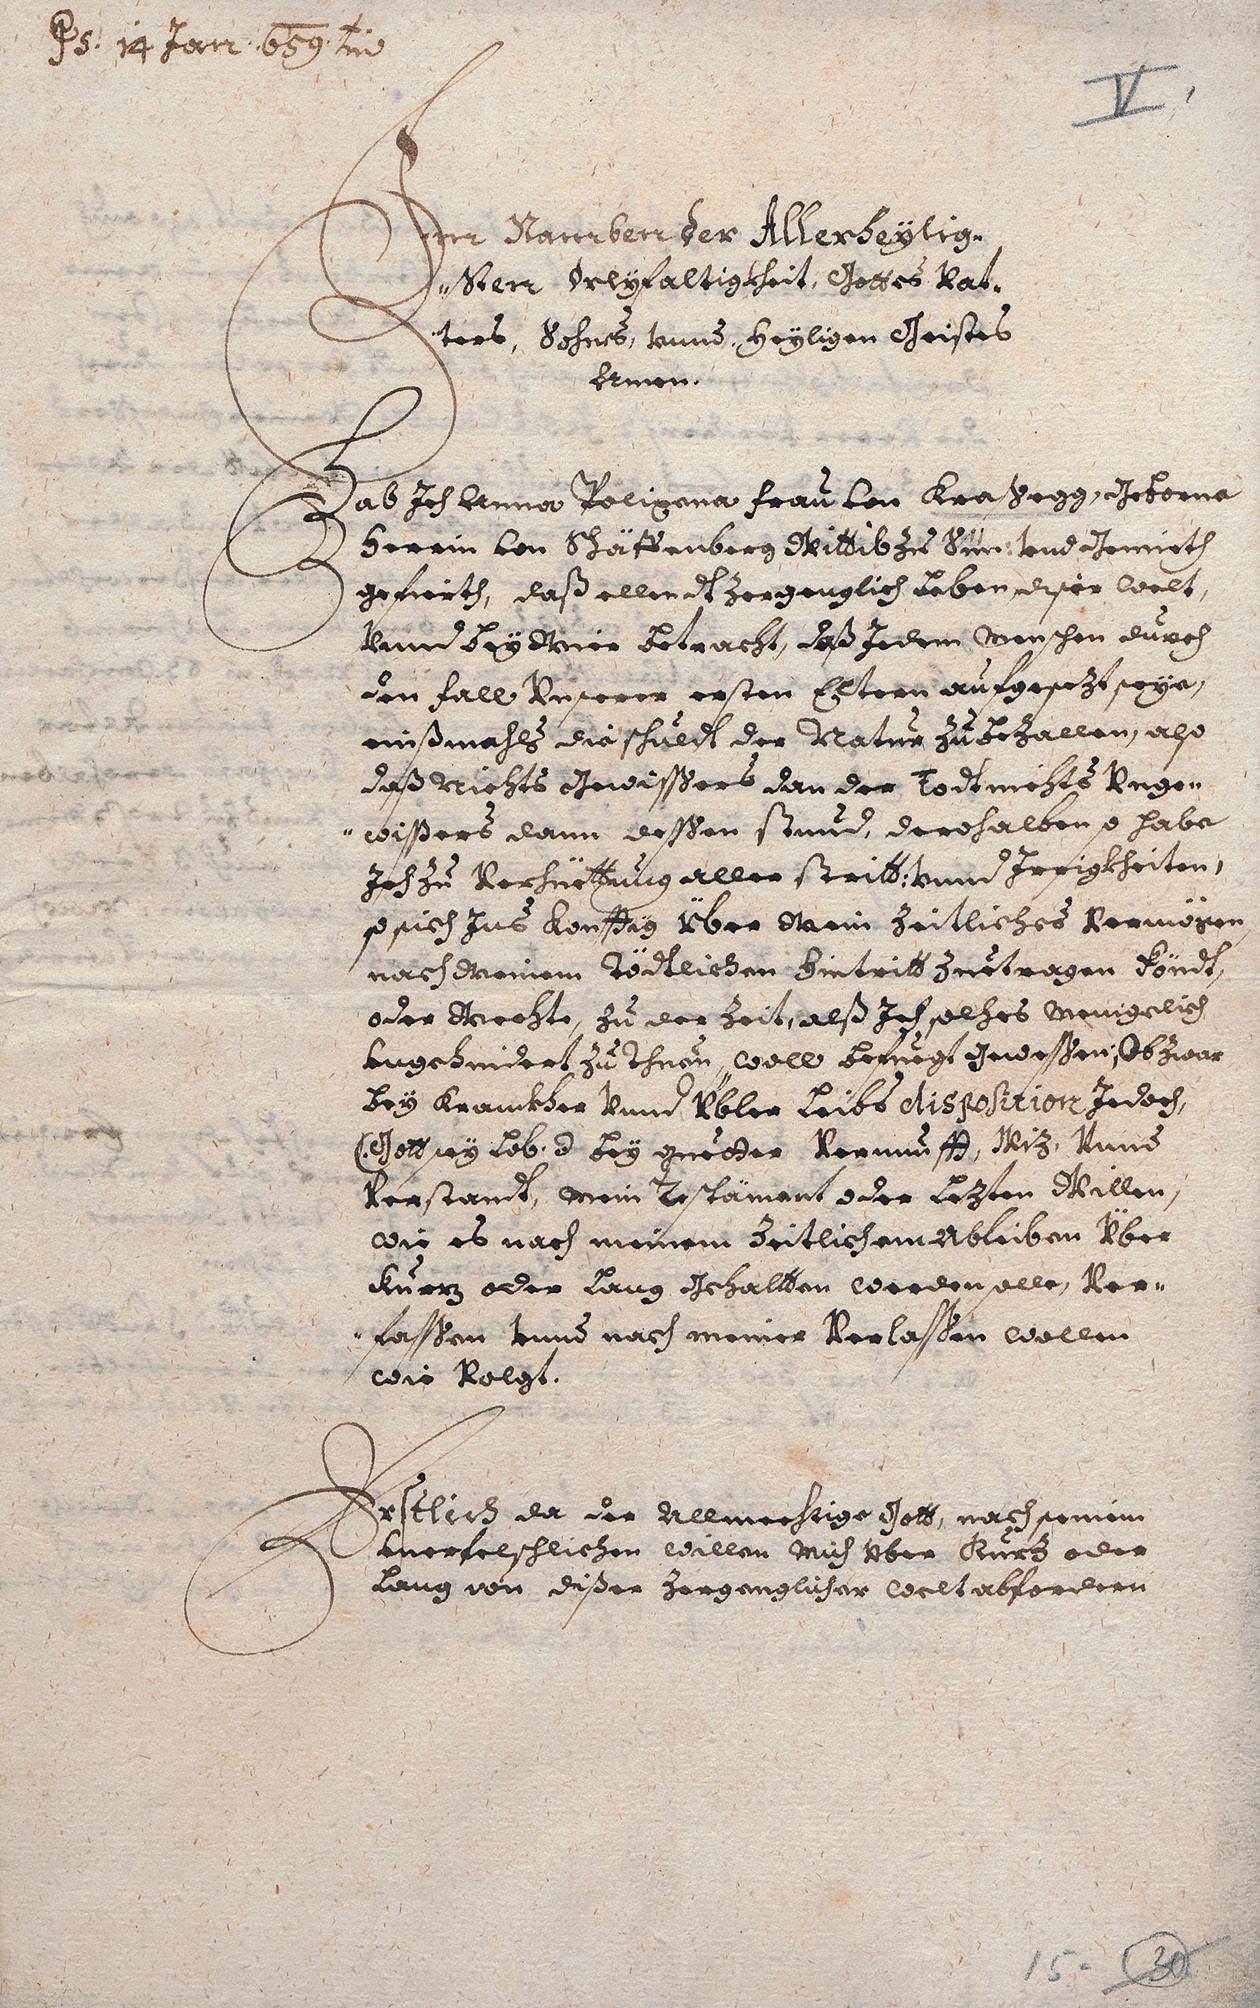 Ps. 14 Jan. 659.
V.
Im Namben der Allerheÿlig-
-sten Dreÿfaltigkheit, Gottes Vat-
ters, Sohnes, vnnd Heÿligen Geistes
Amen.
Hab Ich Anna Polixena Frau von Kraßegg, Geborne
Herrin von Schärffenberg Wittib zu Sün: vnd Gemieth
gefierth, daß ellendt zergenglich Leben diser welt,
Vnnd beÿ Mier betracht, daß Jedem Menschen durch
den fall Vnserer ersten Eltern aufgesezt seÿe,
einßmahls die schuldt der Natur zu bezallen, also
daß Nichts Gewissers dan der Todt nichts Vnge-
-wißers dann dessen stund, derohalben so habe
Ich zu Verhüettung aller stritt: vnnd Irrigkheiten,
so sich Ins Konfftig Über Mein Zeitliches Vermögen,
nach Meinem Tödtlichen Hintritt zuetragen köndt,
oder Mechte, zu der Zeit, alß Ich solhes Menigelich
vngehindert zu Thuen, woll befuegt gewessen, Ob zwar
beÿ Krankher Vnnd Übler Leibs disposition Jedoch,
(: Gott seÿ Lob :) beÿ gueter Vernunfft, Wiz, Vnnd
Verstandt, Mein Testäment oder Lezten Willen,
wie es nach meinem Zeitlichem Ableiben Über
Kurz oder Lang Gehaltten werden solle, Ver-
-fassen vnnd nach meiner Verlassen wollen
wie Volgt.
Erstlich da der Allmechtige Gott, nach seinem
vnerfelschlichen willen Mich Vber Kurz oder
Lang von dißer zergenglicher welt abfordern
15- 30